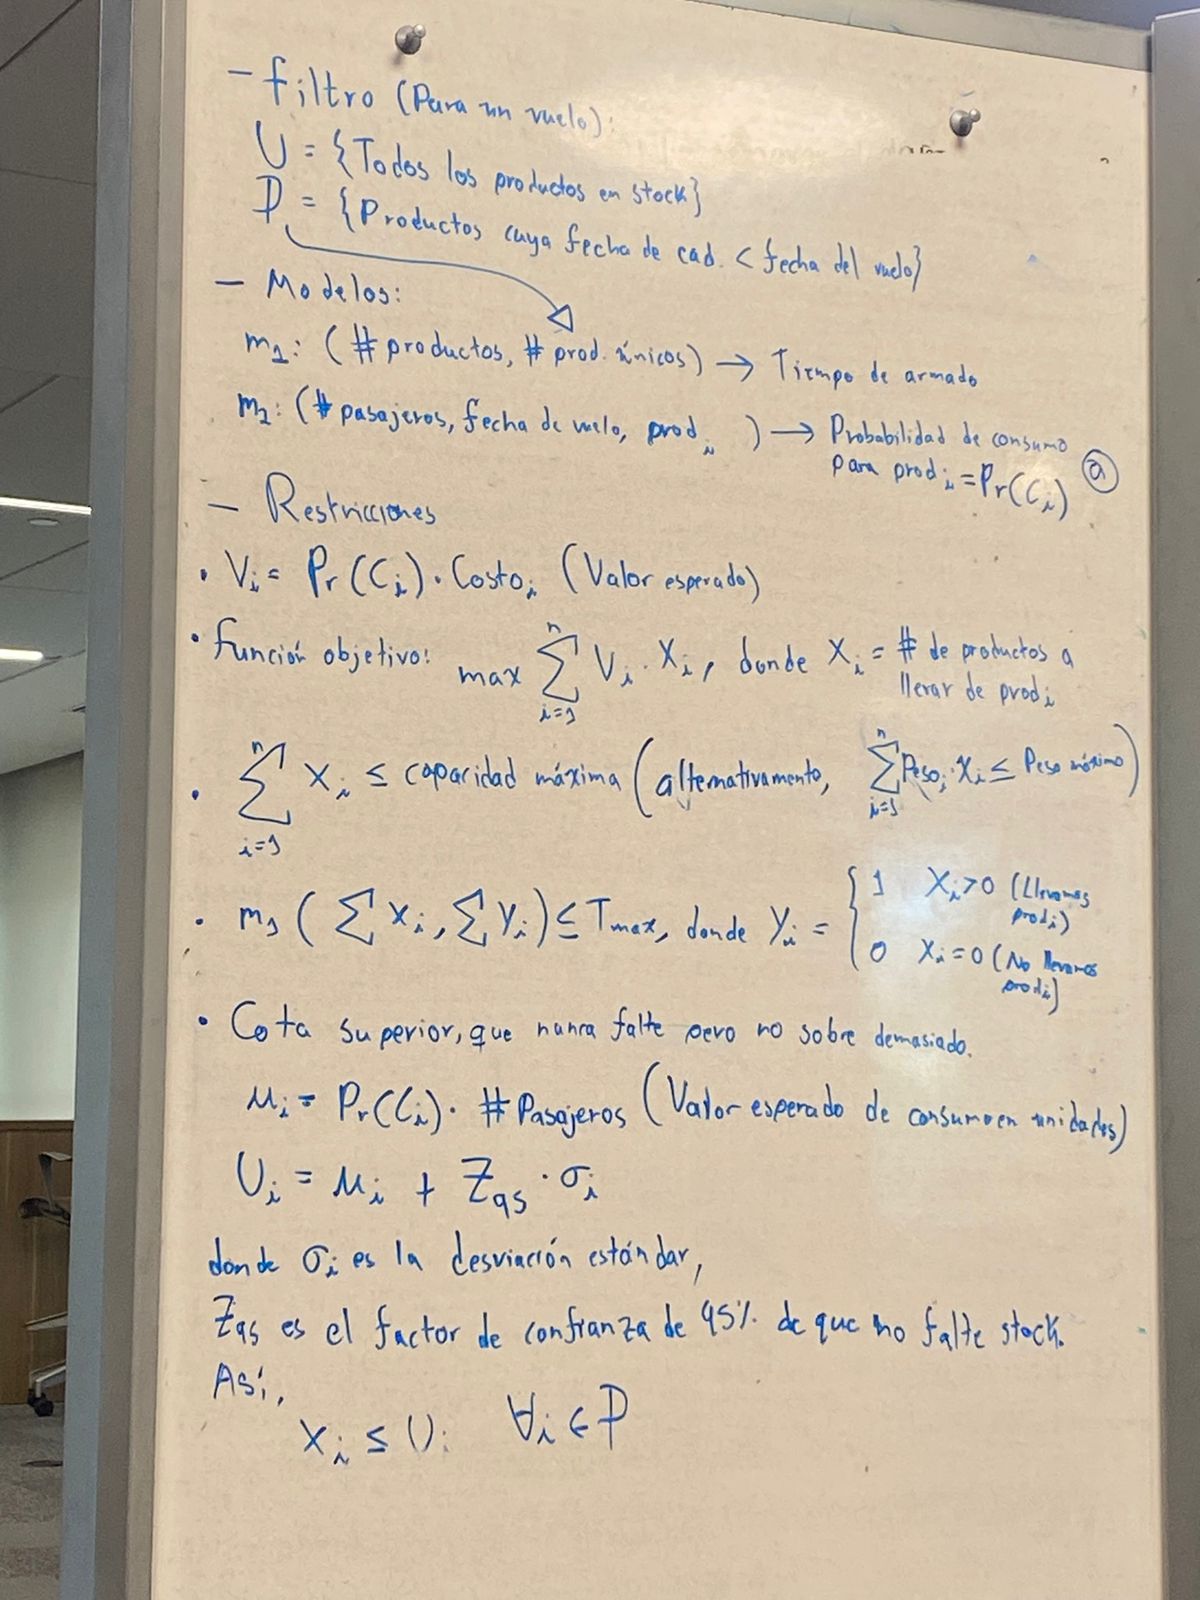 - Filtro (Para un vuelo):
U = {Todos los productos en stock}
P = {Productos cuya fecha de cad. < fecha del vuelo}
- Modelos:
m₁: (# productos, # prod. únicos) → Tiempo de armado
m₂: (# pasajeros, fecha de vuelo, prodᵢ ) → Probabilidad de consumo
para prodᵢ = Pr(Cᵢ) ⓐ
- Restricciones
• Vᵢ = Pr(Cᵢ) · Costoᵢ (Valor esperado)
• Función objetivo: max ∑ᵢ₌₁ⁿ Vᵢ · Xᵢ, donde Xᵢ = # de productos a
llevar de prodᵢ
• ∑ᵢ₌₁ⁿ Xᵢ ≤ capacidad máxima (alternativamento, ∑ᵢ₌₁ⁿ Pesoᵢ · Xᵢ ≤ Peso máximo)
• m₁ (∑ Xᵢ, ∑ Yᵢ) ≤ Tmax, donde Yᵢ = { 1 Xᵢ > 0 (Llevamos prodᵢ)
0 Xᵢ = 0 (No llevamos prodᵢ)
• Cota superior, que nunca falte pero no sobre demasiado.
μᵢ = Pr(Cᵢ) · # Pasajeros (Valor esperado de consumo en unidades)
Uᵢ = μᵢ + Z₉₅ · σᵢ
donde σᵢ es la desviación estándar,
Z₉₅ es el factor de confianza de 95% de que no falte stock.
Así,
Xᵢ ≤ Uᵢ ∀ᵢ ∈ P